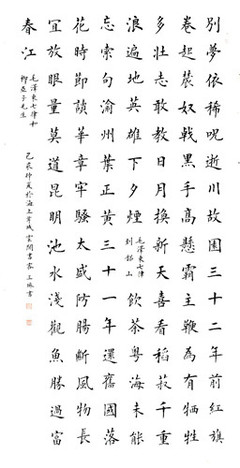 別夢依稀呪逝川故園三十二年前紅旗
卷起農奴戟黑手高懸霸主鞭為有犧牲
多壯志敢教日月換新天喜看稻菽千重
浪遍地英雄下夕煙
毛澤東七律
到韶山
飲茶粵海未能
忘索句渝州葉正黃三十一年還舊國落
花時節讀華章牢騷太盛防腸斷風物長
宜放眼量莫道昆明池水淺觀魚勝過富
春江
毛澤東七律和
柳亞子先生
仲夏於海上 城雲閒書齋 書